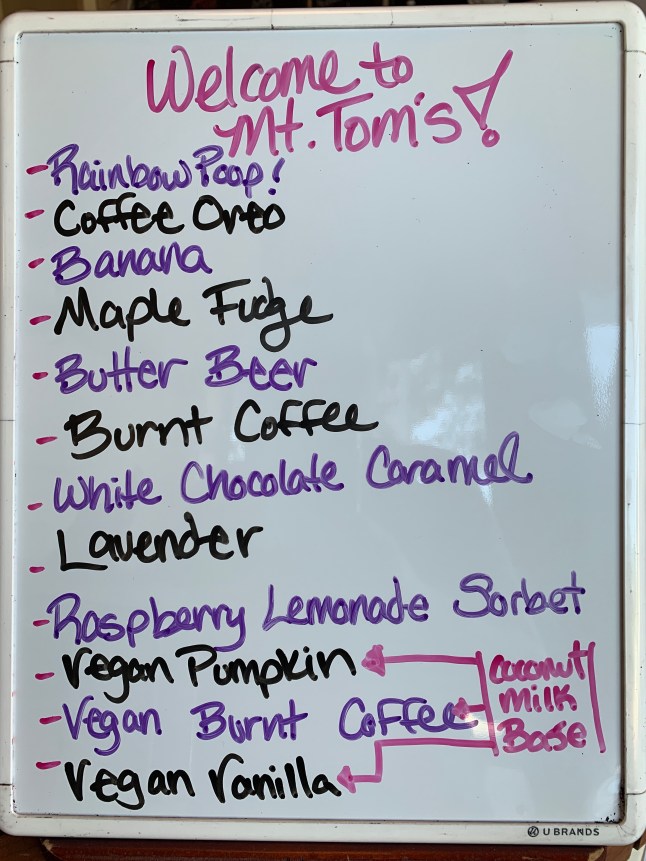 Welcome to
Mt. Tom's!
- Rainbow Poop!
- Coffee Oreo
- Banana
- Maple Fudge
- Butter Beer
- Burnt Coffee
- White Chocolate Caramel
- Lavender
- Raspberry Lemonade Sorbet
- Vegan Pumpkin
- Vegan Burnt Coffee
- Vegan Vanilla
coconut
milk
Base
U BRANDS